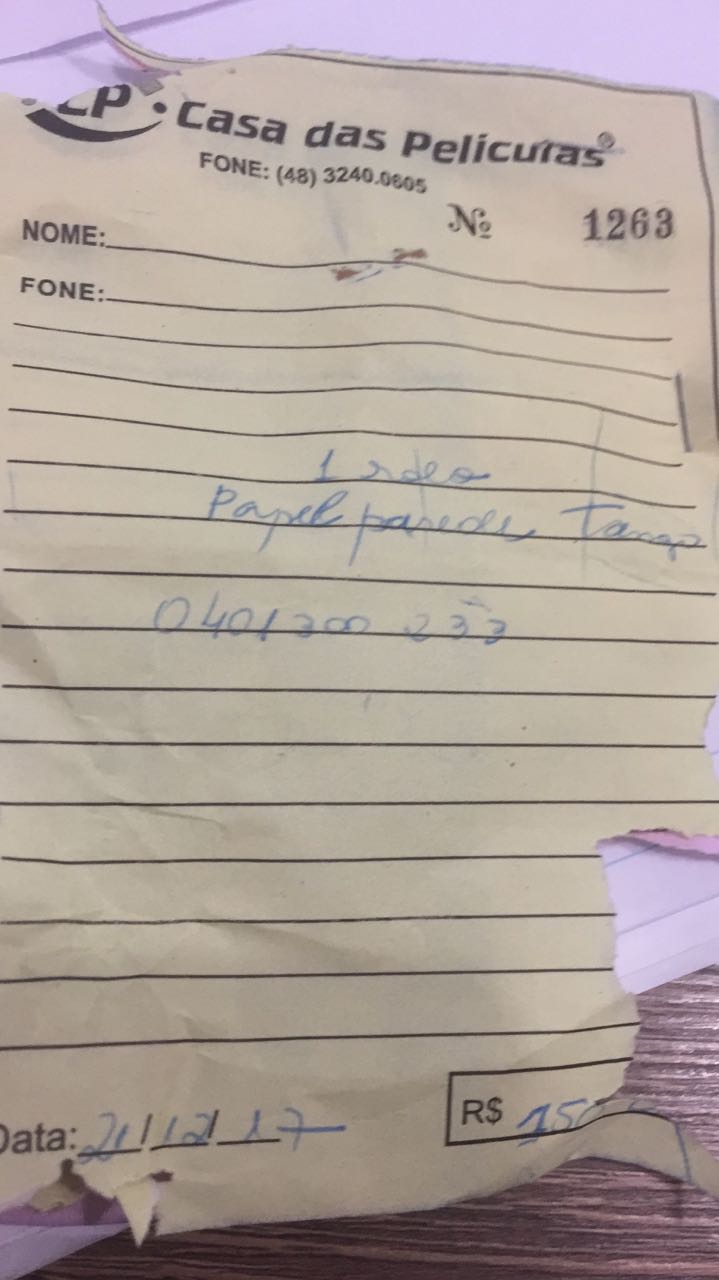 CP • Casa das Películas®
FONE: (48) 3240.0605
Nº 1263
NOME:
FONE:
1 rolo
Papel parede Tango
0401300 233
Data: 21/12/17
R$ 150